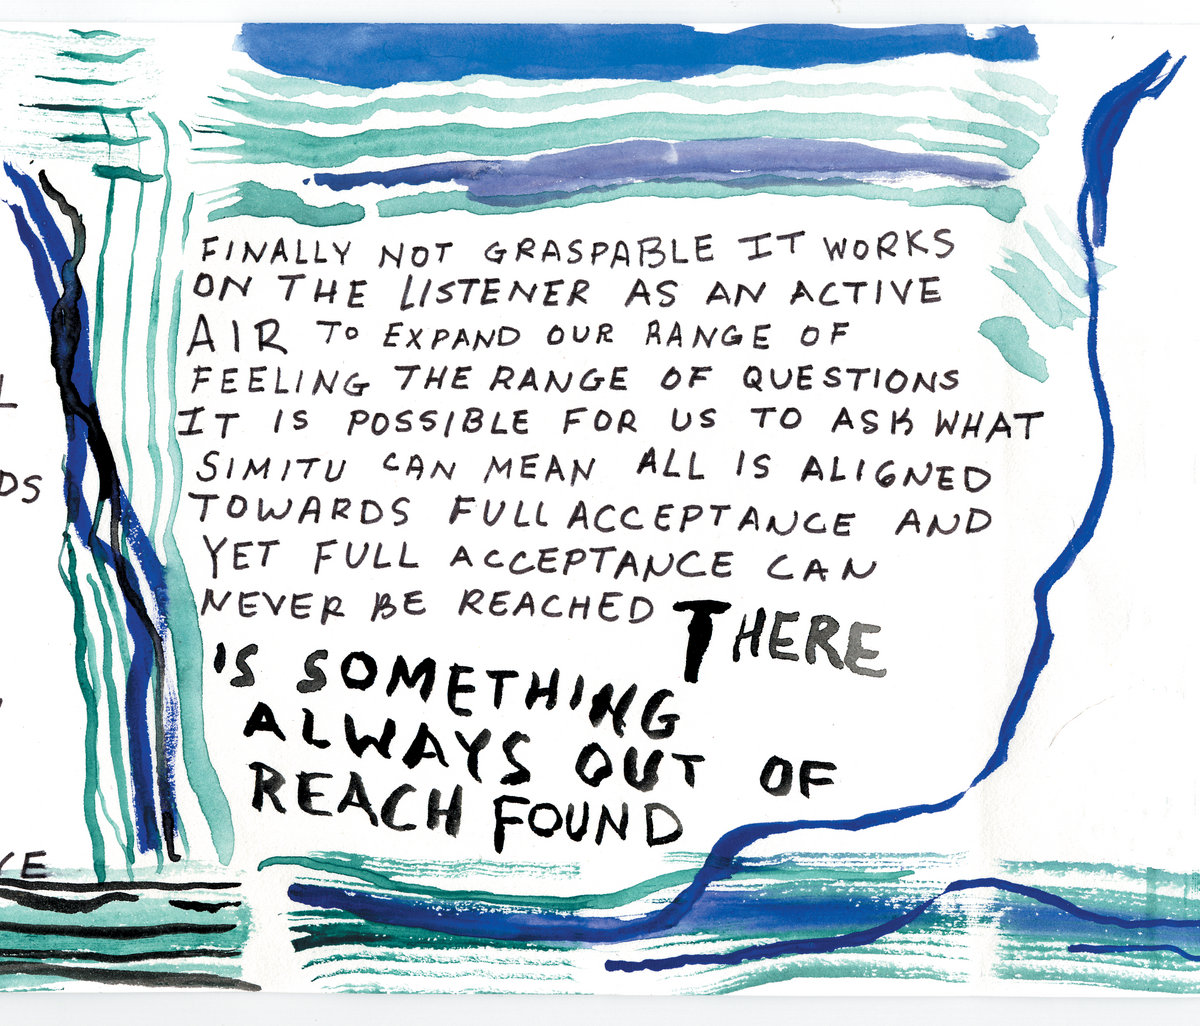 L
DS
CE
FINALLY NOT GRASPABLE IT WORKS
ON THE LISTENER AS AN ACTIVE
AIR TO EXPAND OUR RANGE OF
FEELING THE RANGE OF QUESTIONS
IT IS POSSIBLE FOR US TO ASK WHAT
SIMITU CAN MEAN ALL IS ALIGNED
TOWARDS FULL ACCEPTANCE AND
YET FULL ACCEPTANCE CAN
NEVER BE REACHED THERE
IS SOMETHING
ALWAYS OUT OF
REACH FOUND